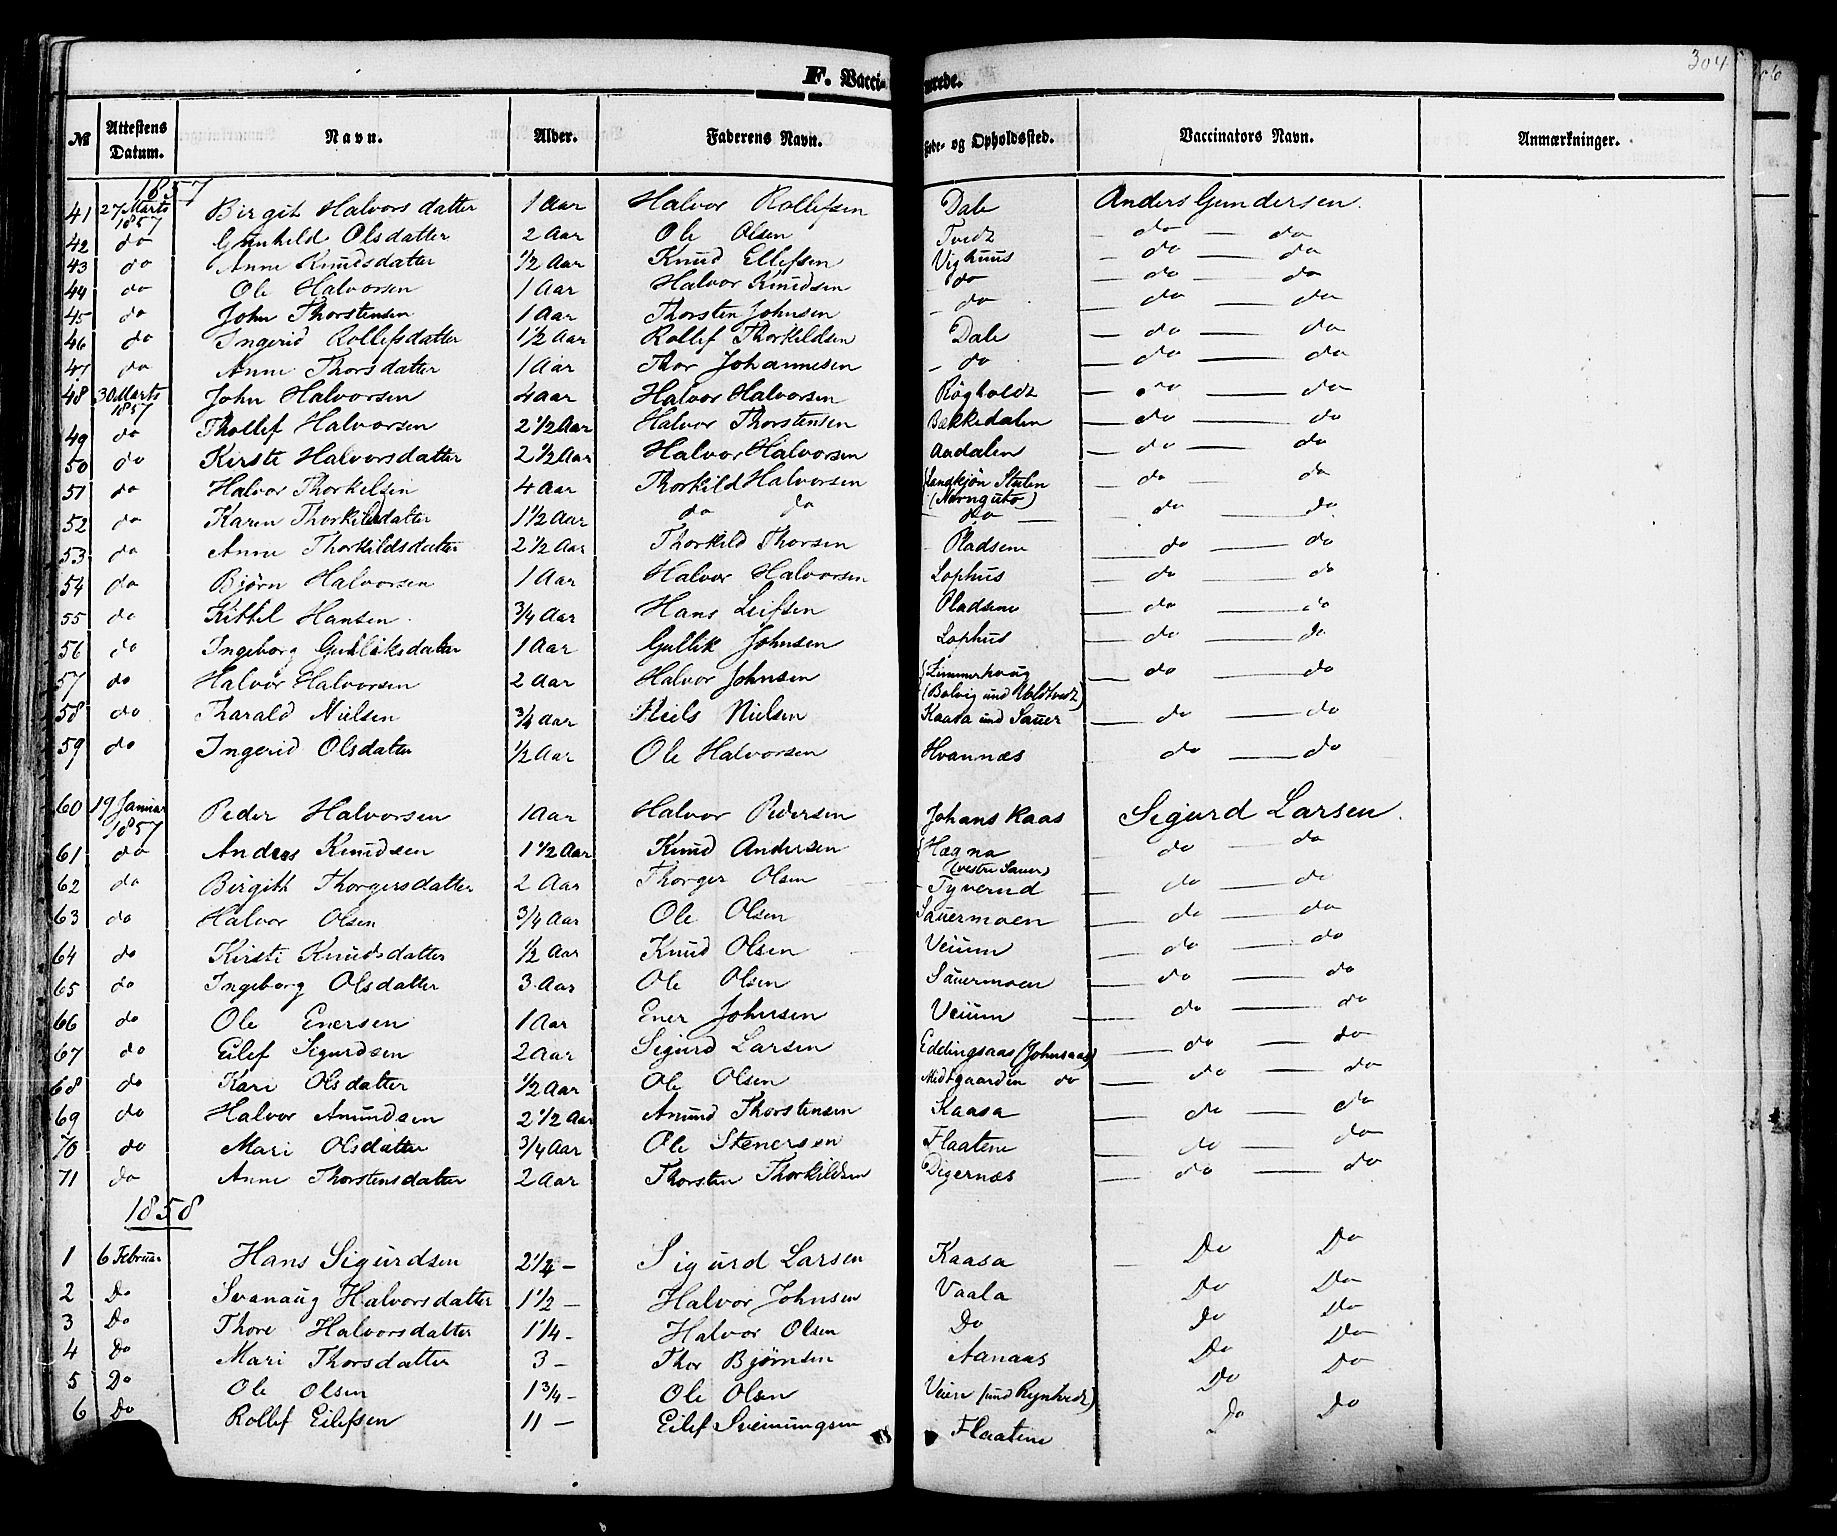 304
F. Vaccinerede.
№ Attestens Datum. Navn. Alder. Faderens Navn. Føde- og Opholdssted. Vaccinators Navn. Anmærkninger.
1857
41 27 Marts 1857 Birgit Halvorsdatter 1 Aar Halvor Rollefsen Dale Anders Gundersen.
42 do Gunhild Olsdatter 2 Aar Ole Olsen Tvedt do do
43 do Anne Knudsdatter 1/2 Aar Knud Ellefsen Vighuus do do
44 do Ole Halvorsen 1 Aar Halvor Knudsen do do do
45 do John Thorstensen 1 Aar Thorsten Johnsen do do do
46 do Ingerid Rollefsdatter 1 1/2 Aar Rollef Thorkildsen Dale do do
47 do Anne Thorsdatter 1 Aar Thor Johannesen do do do
48 30 Marts 1857 John Halvorsen 4 aar Halvor Halvorsen Røgholdt do do
49 do Thollef Halvorsen 2 1/2 Aar Halvor Thorstensen Bækkedalen do do
50 do Kirsti Halvorsdatter 2 1/2 Aar Halvor Halvorsen Aadalen do do
51 do Halvor Thorkelsen 4 Aar Thorkild Halvorsen do do
52 do Karen Thorkildsdatter 1 1/2 Aar do do do do do
53 do Anne Thorkildsdatter 2 1/2 Aar Thorkild Thorsen Pladsene do do
54 do Bjørn Halvorsen 1 Aar Halvor Halvorsen Lophus do do
55 do Kittel Hansen 3/4 Aar Hans Leifsen Pladsene do do
56 do Ingeborg Gulliksdatter 1 Aar Gullik Johnsen Lophus do do
57 do Halvor Halvorsen 2 Aar Halvor Johnsen Zimmerhoug do do
(Bolvig und Voldtvedt)
58 do Tharald Nielsen 3/4 aar Niels Nielsen Kaasa und Sauer do do
59 do Ingerid Olsdatter 1/2 Aar Ole Halvorsen Hvannæs do do
60 19 Januar 1857 Peder Halvorsen 1 Aar Halvor Pedersen Johans Kaas Sigurd Larsen.
61 do Anders Knudsen 1 1/2 Aar Knud Andersen Hægna (vestre Sauer) do do
62 do Birgith Thorgersdatter 2 Aar Thorger Olsen Tyverud do do
63 do Halvor Olsen 3/4 Aar Ole Olsen Sauermoen do do
64 do Kirsti Knudsdatter 1/2 Aar Knud Olsen Veium do do
65 do Ingeborg Olsdatter 3 Aar Ole Olsen Sauermoen do do
66 do Ole Enersen 1 Aar Ener Johnsen Veium do do
67 do Eilef Sigurdsen 2 Aar Sigurd Larsen Eddingsaas (Johnsaas) do do
68 do Kari Olsdatter 1/2 Aar Ole Olsen Midtgaarden do do do
69 do Halvor Anundsen 2 1/2 Aar Anund Thorstensen Kaasa do do
70 do Mari Olsdatter 3/4 Aar Ole Stenersen Flaatene do do
71 do Anne Thorstensdatter 2 Aar Thorsten Thorkildsen Digernæs do do
1858
1 6 Februar Hans Sigurdsen 2 1/4 – Sigurd Larsen Kaasa Do Do
2 Do Svanaug Halvorsdatter 1 1/2 – Halvor Johnsen Vaala Do Do
3 Do Thore Halvorsdatter 1 1/4 – Halvor Olsen Do Do Do
4 Do Mari Thorsdatter 3 – Thor Bjørnsen Aanaas Do Do
5 Do Ole Olsen 1 3/4 – Ole Olsen Do Do
6 Do Rollef Eilefsen 11 – Eilef Sveinungsen Flaatene Do Do